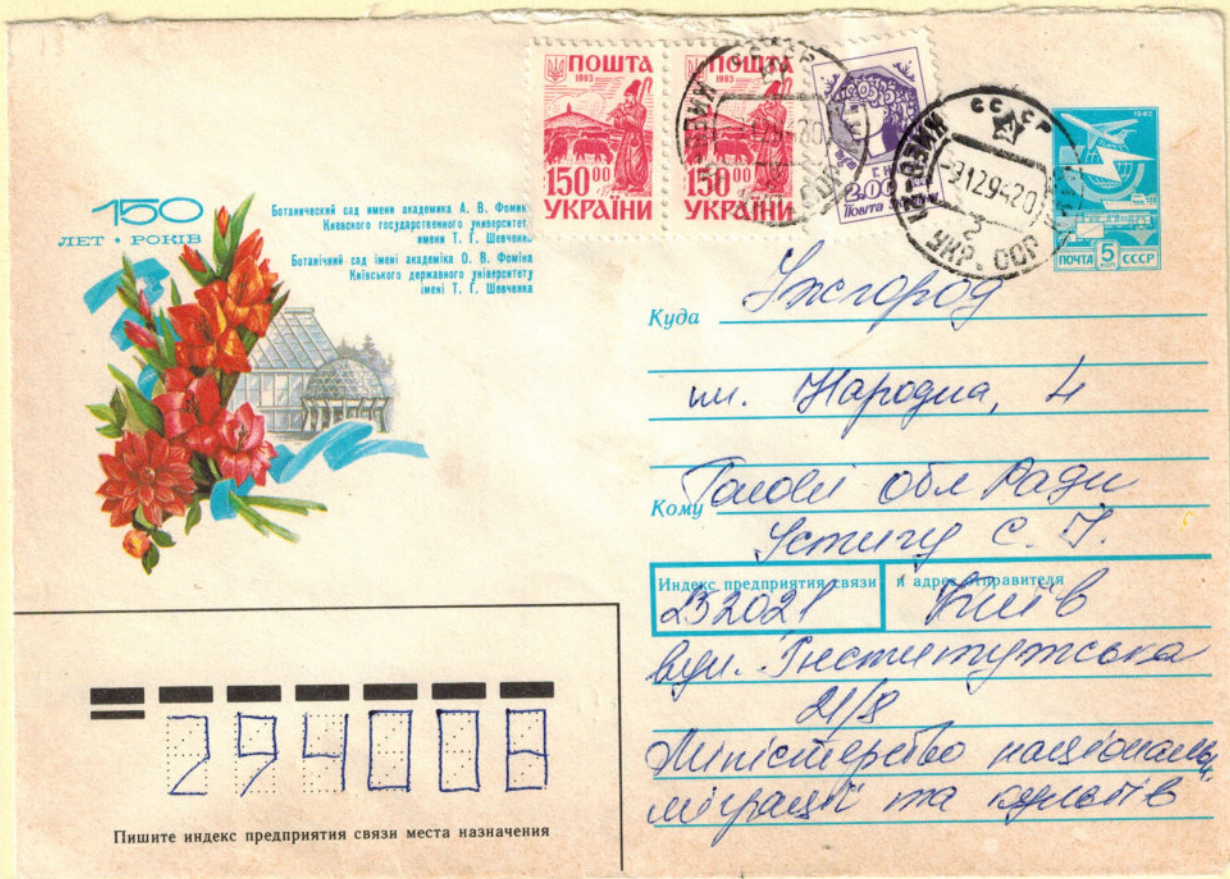 150
ЛЕТ • РОКІВ
Ботанический сад имени академика А. В. Фомин
Киевского государственного университет
имени Т. Г. Шевченк
Ботанічний сад імені академіка О. В. Фоміна
Київського державного університету
імені Т. Г. Шевченка
ПОШТА
1993
150 00
УКРАЇНИ
ПОШТА
1993
150 00
УКРАЇНИ
2.00
Пошта України
СССР
КИЕВ
СССР
КИЕВ
-9.12.94 20
УКР. ССР
1982
ПОЧТА 5 КОП СССР
Куда Ужгород
пл. Народна, 4
Кому Голові обл Ради
Устичу С. І.
Индекс предприятия связи и адрес отправителя
252021 Київ
вул. Інститутська
21/8
Міністерство національ
міграції та культів
294008
Пишите индекс предприятия связи места назначения